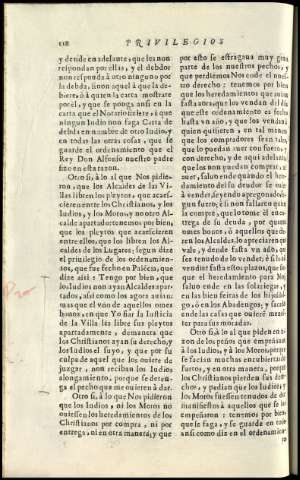 118 PRIVILEGIOS
y dende en adelante, que les non
respondan por ellas, y el debdor
non responda à otro ninguno por
la debda, sinon aquel à que la de-
biere, ò à quien la carta mostrare
por el, y que se ponga ansi en la
carta que el Notario ficiere, è que
ningun Iudio non faga Carta de
debda en nombre de otro Iudio, y
en todas las otras cosas, que se
guarde el ordenamiento que el
Rey Don Alfonso nuestro padre
fizo en esta razon.
Otro si, à lo al que Nos pidie-
ron, que los Alcaldes de las Vi-
llas libren los pleytos, que acaes-
cieren entre los Christianos, y los
Iudios, y los Moros, y no otro Al-
calde apartado: tenemos por bien,
que los pleytos que acaescieren
entre ellos, que los libren los Al-
caldes de los Lugares, segun dize
el privilegio de los ordenamien-
tos, que fue fecho en Palécia, que
dize assi: Tengo por bien, que
los Iudios non ayan Alcaldes apar-
tados, assi como los agora auian:
mas que el vno de aquellos omes
bonos, en que Yo fiar la Iusticia
de la Villa les libre sus pleytos
apartadamente, demanera que
los Christianos ayan su derecho, y
los Iudios el suyo, y que por su
culpa de aquel que los ouiere de
juzgar, non reciban los Iudios
alongamiento, porque se deten-
ga el pecho que me ouieren à dar.
Otro si, à lo que Nos pidieron
que los Iudios, ni los Moros no
ouiessen los heredamientos de los
Christianos por compra, ni por
entrega, ni en otra manera, y que
por esto se estragaua muy gran
parte de los nuestros pechos, y
que perdiemos Nos ende el nues-
tro derecho: tenemos por bien
que los heredamientos que
fasta aora, que los vendan del dia
que este ordenamiento es fecho
fasta vn año, y que los vendan à
quien quisieren, en tal manera
que los compradores sean tales,
que lo puedan aur con fuero, y
con derecho, y de aqui adelante
que los non puedan comprar, ni
auer, saluo ende quando el hereda-
miento del su deudor se
à vender, seyendo apregonado
gun fuero, è si non fallaren qui
la compre, que lo tome èl en en-
trega de su deuda, por quanto
omes bonos, ò aquellos que die-
ren los Alcaldes, lo apreciaren que
vale, y dende fasta vn año, que
ses tenudo de lo vender, è si lo
non vendiere hasta dicho plazo, que
el heredamiento finque à Mi,
saluo ende en las solariegas, y
en las bien feitras de los fijos dal-
go, ò en los Abadengos, y saluo
ende las casas que ouiere menes-
ter para sus moradas.
Otro si, à lo al que piden en ra-
zon de los peños que empeñan
à los Iudios, y à los Moros, porque
se facian muchas encubiertas de
furtos, y en otra manera, porque
los Christianos pierden sus dere-
chos, y pedian que los Iudios y
los Moros fuessen tenudos de dar
manifiestos à aquellos que se los
empeñan: tenemos por bien que
se faga, y se guarde en todo
ansi como dia en el ordenamien-